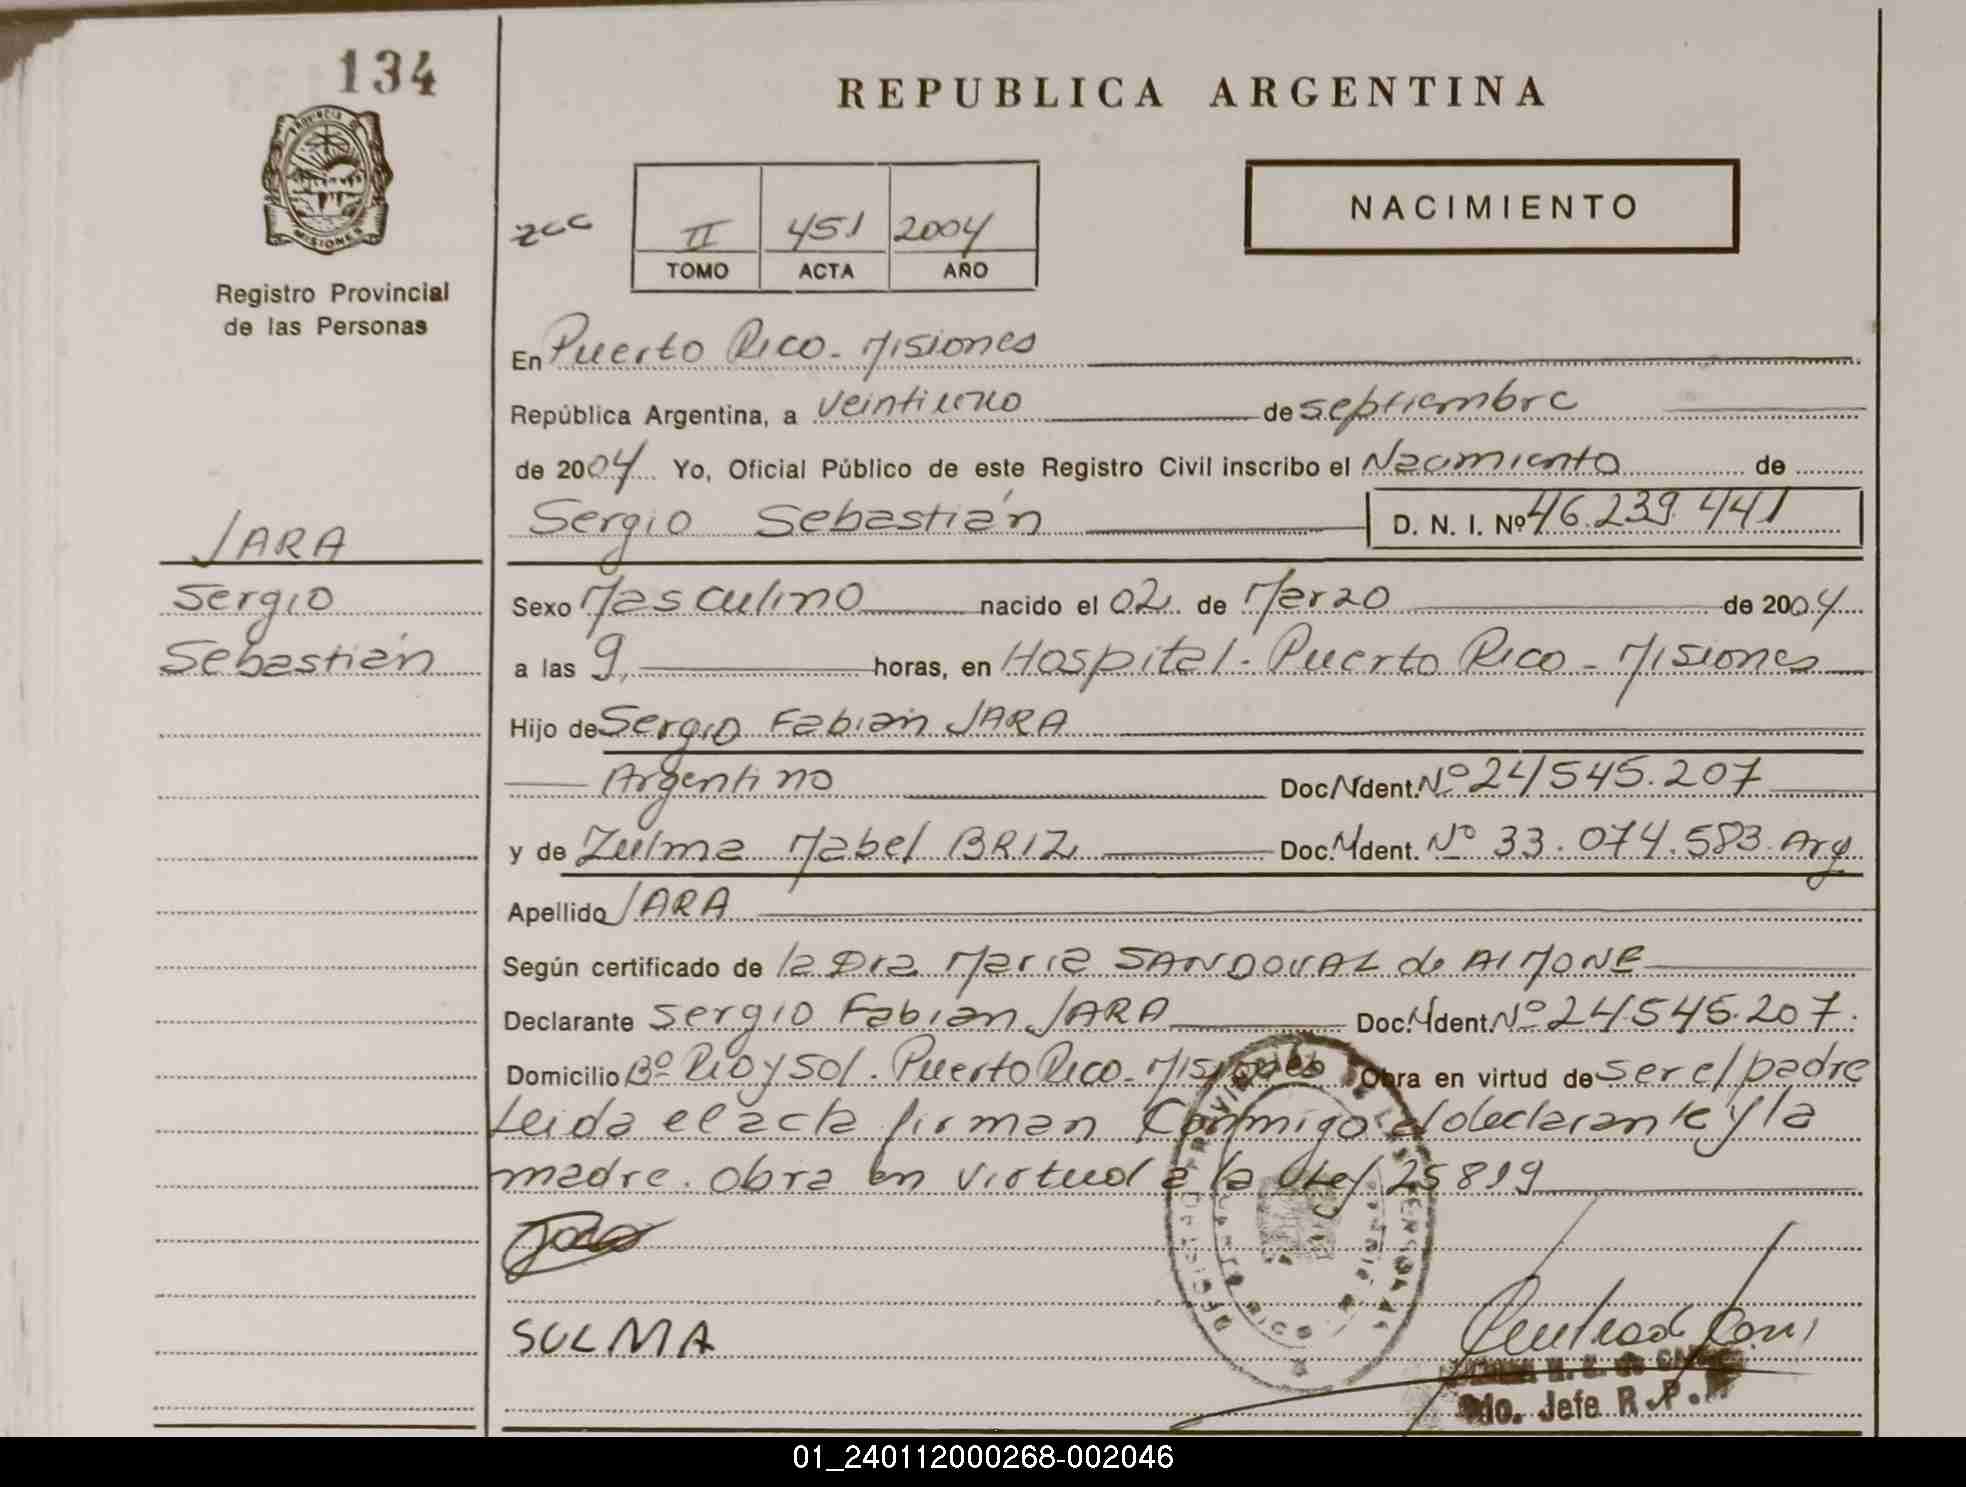 134
REPUBLICA ARGENTINA
PROVINCIA DE
MISIONES
Registro Provincial
de las Personas
II 451 2004
TOMO ACTA AÑO
NACIMIENTO
En Puerto Rico - Misiones
República Argentina, a veintiuno de septiembre
de 2004 Yo, Oficial Público de este Registro Civil inscribo el Nacimiento de
Sergio Sebastián D. N. I. Nº 46.239.441
JARA
Sergio
Sebastián
Sexo Masculino nacido el 02 de Marzo de 2004
a las 9, horas, en Hospital - Puerto Rico - Misiones
Hijo de Sergio Fabian JARA
Argentino Doc. Ident. Nº 24.545.207
y de Zulma Mabel BRIZ Doc. Ident. Nº 33.074.583. Arg.
Apellido JARA
Según certificado de la Dra Maria SANDOVAL de AIMONE
Declarante Sergio Fabian JARA Doc. Ident. Nº 24.545.207.
Domicilio Bº Rio y Sol - Puerto Rico - Misiones Obra en virtud de ser el padre
Leida el acta firman conmigo el declarante y la
madre. Obra en virtud a la Ley 25819
SULMA
Jefe R.P.
01_240112000268-002046